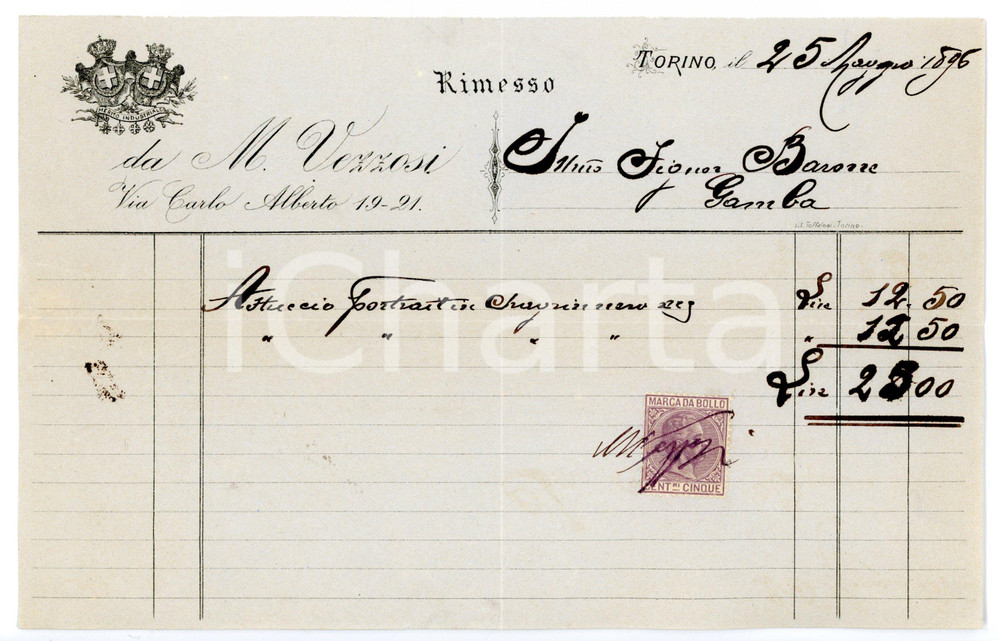 TORINO, il 25 Maggio 1896
Rimesso
MERITO INDUSTRIALE
da M. Vezzosi
Via Carlo Alberto 19-21.
Illmo Signor Barone
Gamba
Astuccio portrait in chagrin nero Lire 12.50
" " " " " 12 50
Lire 25 00
MARCA DA BOLLO
M Vezzosi
CENT.MI CINQUE
iCharta